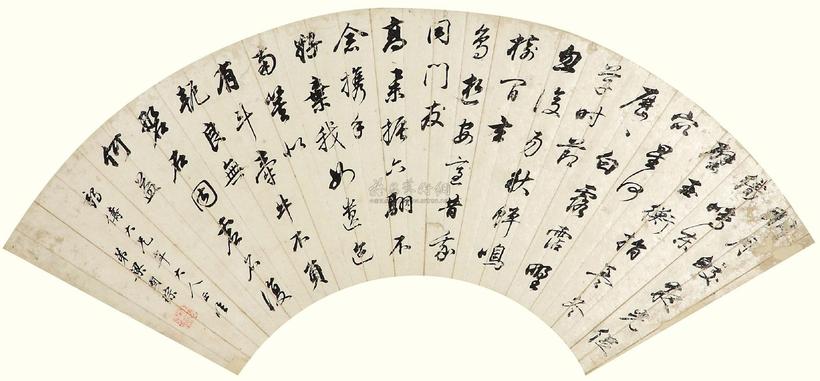 明月皎夜光促
織鳴東
壁玉衡指孟冬
眾星何
歷歷白露沾野
草時節
忽復易秋蟬鳴
樹間玄
鳥逝安適昔我
同門友
高舉振六翮不
念攜手
好棄我如遺跡
南箕北
有斗牽牛不負
軛良無
磐石固虛名復
何益
大兄年大人正
弟梁